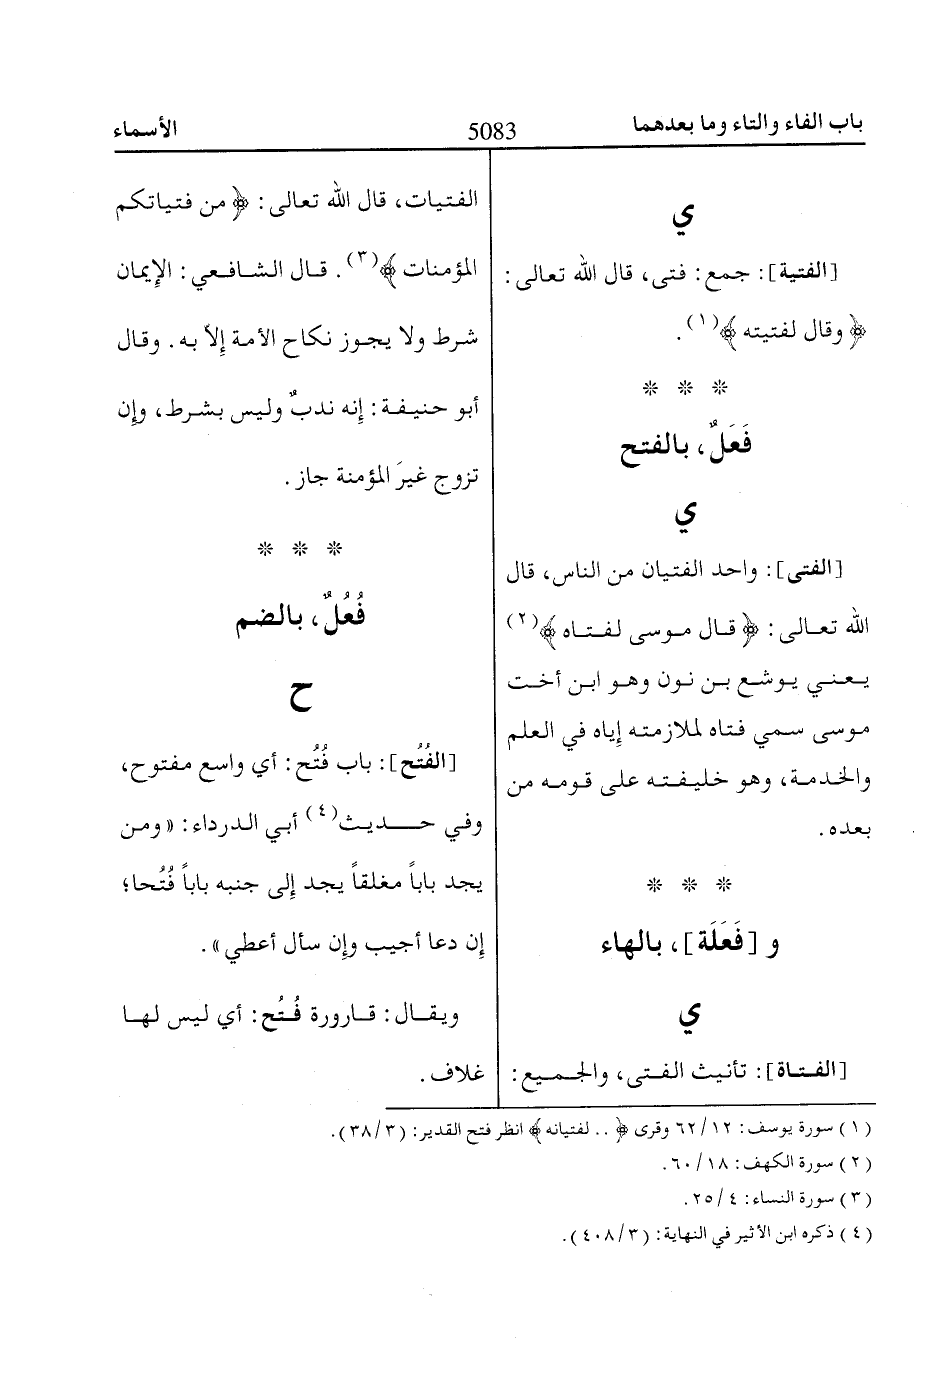 باب الفاء والتاء وما بعدهما 5083 الأسماء
ي
[الفتية]: جمع: فتى، قال الله تعالى:
﴿ وقال لفتيته ﴾(١).
* * *
فَعَلٌ، بالفتح
ي
[الفتى]: واحد الفتيان من الناس، قال
الله تعالى: ﴿ قال موسى لفتاه ﴾(٢)
يعني يوشع بن نون وهو ابن أخت
موسى سمي فتاه لملازمته إياه في العلم
والخدمة، وهو خليفته على قومه من
بعده.
* * *
و [فَعَلَة]، بالهاء
ي
[الفتاة]: تأنيث الفتى، والجميع:
الفتيات، قال الله تعالى: ﴿ من فتياتكم
المؤمنات ﴾(٣). قال الشافعي: الإيمان
شرط ولا يجوز نكاح الأمة إلاّ به. وقال
أبو حنيفة: إنه ندبٌ وليس بشرط، وإن
تزوج غيرَ المؤمنة جاز.
* * *
فُعُلٌ، بالضم
ح
[الفُتُح]: باب فُتُح: أي واسع مفتوح،
وفي حديث(٤) أبي الدرداء: «ومن
يجد باباً مغلقاً يجد إلى جنبه باباً فُتُحا؛
إن دعا أجيب وإن سأل أعطي».
ويقال: قارورة فُتُح: أي ليس لها
غلاف.
(١) سورة يوسف: ١٢/ ٦٢ وقرى ﴿ .. لفتيانه ﴾ انظر فتح القدير: (٣/ ٣٨).
(٢) سورة الكهف: ١٨/ ٦٠.
(٣) سورة النساء: ٤/ ٢٥.
(٤) ذكره ابن الأثير في النهاية: (٣/ ٤٠٨).